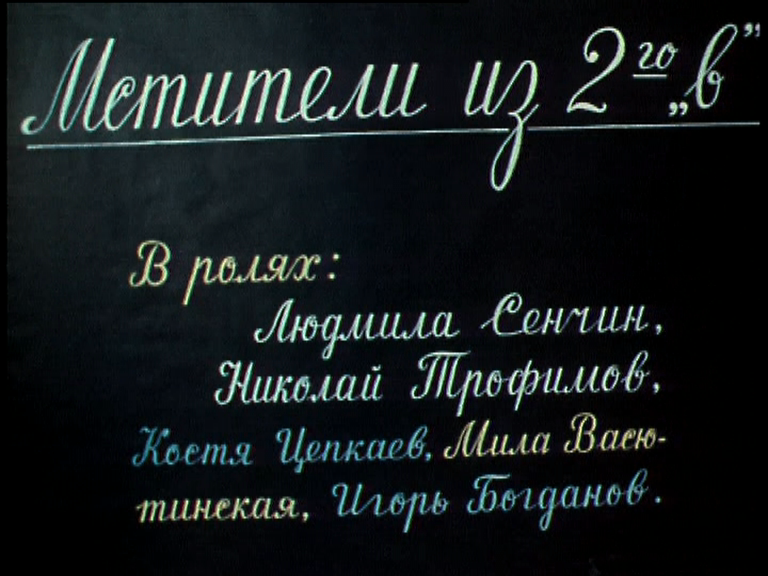 Мстители из 2го „в”
В ролях:
Людмила Сенчин,
Николай Трофимов,
Костя Цепкаев, Мила Васю-
тинская, Игорь Богданов.